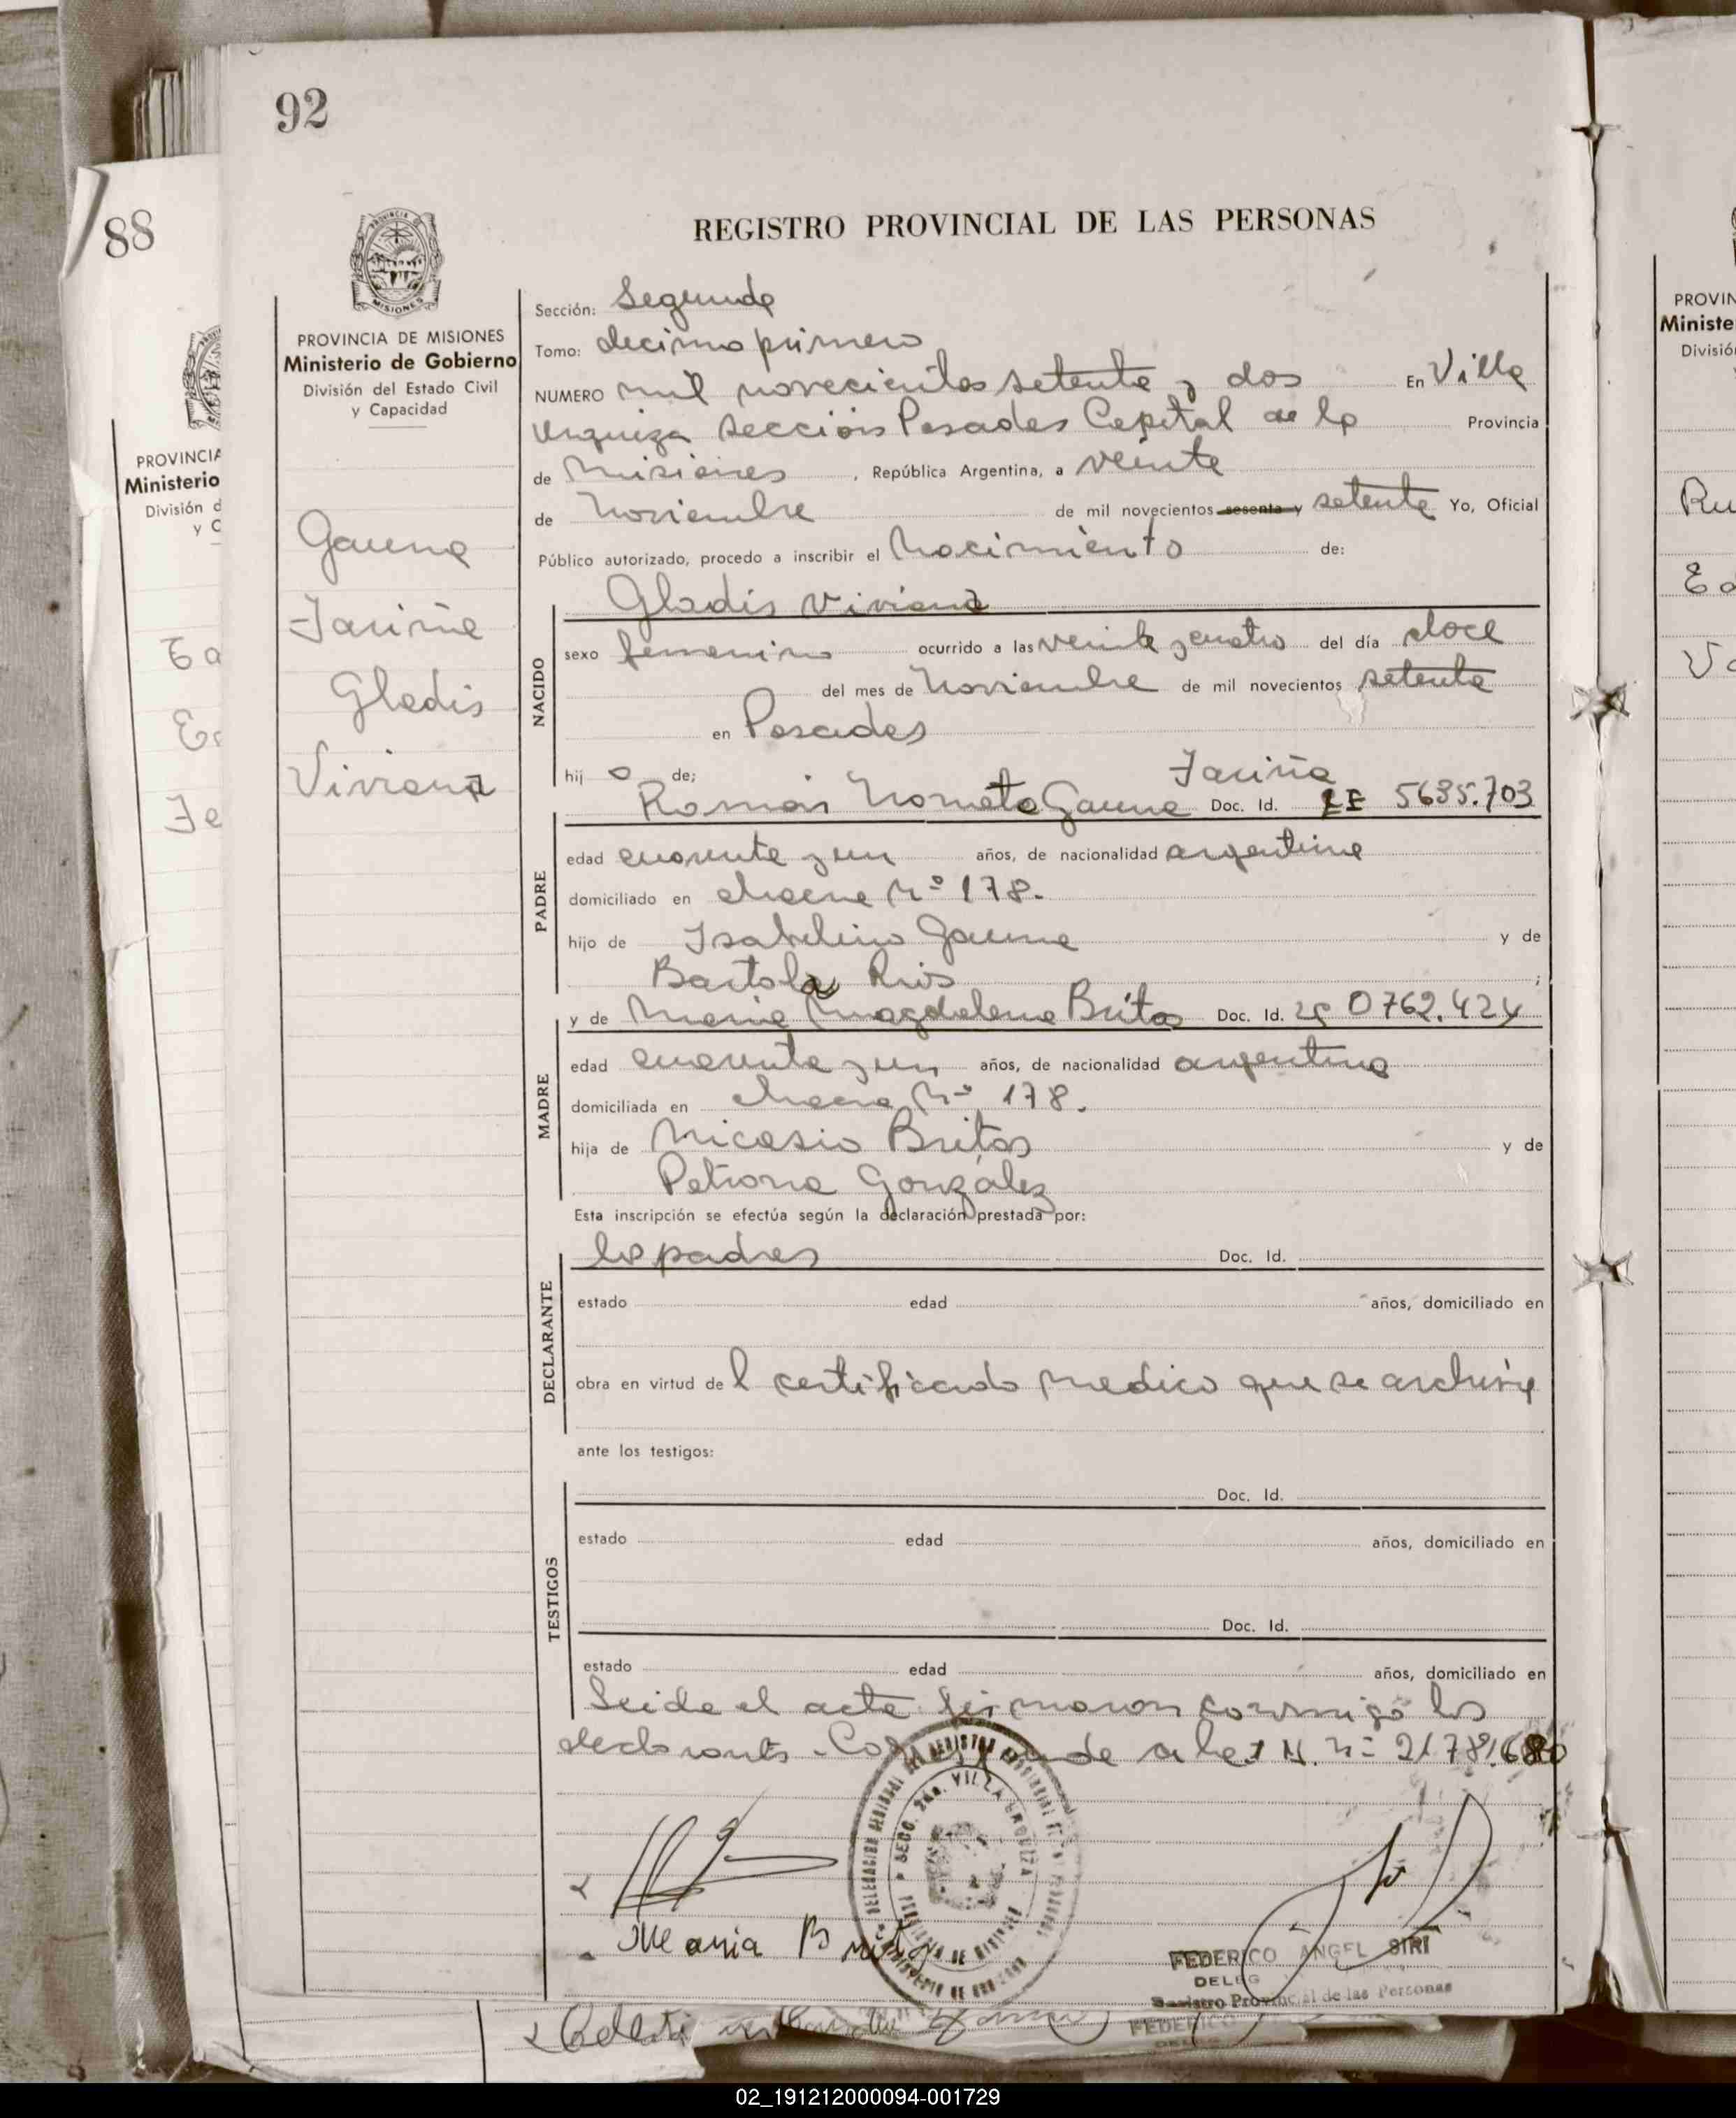 92
88
REGISTRO PROVINCIAL DE LAS PERSONAS
MISIONES
PROVINCIA DE MISIONES
Ministerio de Gobierno
División del Estado Civil
y Capacidad
Gauna
Fariña
Gladis
Viviana
Sección: Segunda
Tomo: decimo primero
NUMERO mil novecientos setenta y dos En Villa
Urquiza Sección Posadas Capital de la Provincia
de Misiones , República Argentina, a veinte
de Noviembre de mil novecientos sesenta y setenta Yo, Oficial
Público autorizado, procedo a inscribir el Nacimiento de:
Gladis Viviana
NACIDO
sexo femenino ocurrido a las veinte y cuatro del día doce
del mes de Noviembre de mil novecientos setenta
en Posadas
hij a de;
Fariña
Roman Gauna Doc. Id. LE 5635.703
PADRE
edad cuarenta y un años, de nacionalidad argentina
domiciliado en chacra Nº 178.
hijo de Isabelino Gauna y de
Bartola Rios ;
y de Maria Magdalena Britos Doc. Id. 0762.424
MADRE
edad cuarenta y un años, de nacionalidad argentina
domiciliada en chacra Nº 178.
hija de Nicasio Britos y de
Petrona González
Esta inscripción se efectúa según la declaración prestada por:
los padres Doc. Id.
DECLARANTE
estado edad años, domiciliado en
obra en virtud de l certificado medico que se archiva
ante los testigos:
TESTIGOS
Doc. Id.
estado edad años, domiciliado en
Doc. Id.
estado edad años, domiciliado en
Leida el acta firmaron conmigo los
declarantes. Corresponde a la M. Nº 21.781.680
SECC. 2da. VILLA URQUIZA
PROVINCIA DE MISIONES
Maria Britos
FEDERICO ANGEL SIRI
DELEG
Registro Provincial de las Personas
FEDERICO
PROVINCIA
Ministerio
División d
y C
PROVIN
Ministe
Divisió
02_191212000094-001729